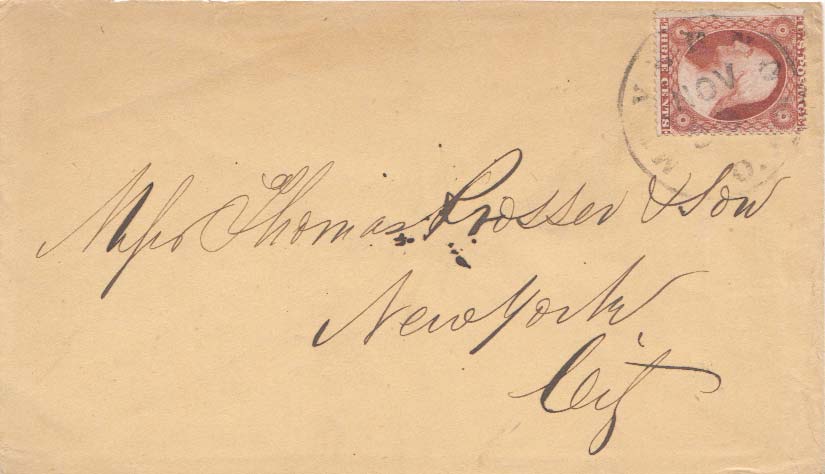 THREE CENTS
U.S. POSTAGE
NOV
Messrs Thomas Prosser & Son
New York
City